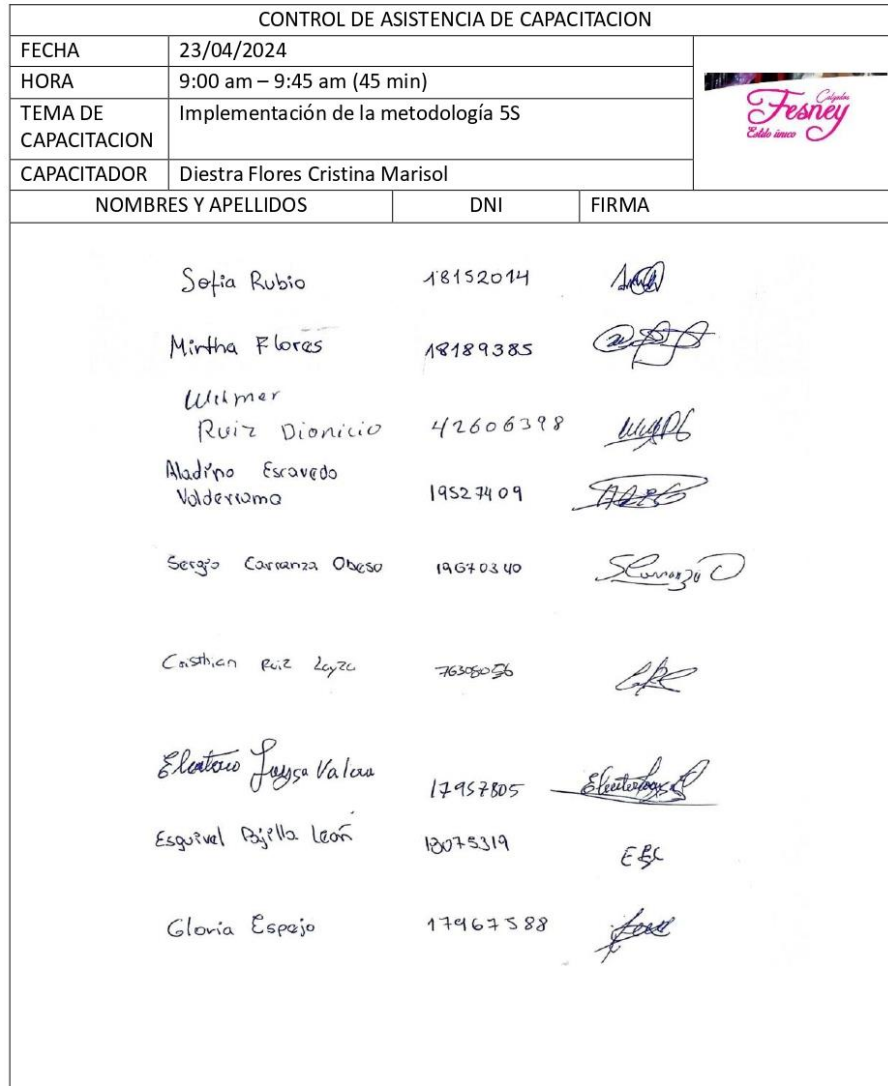 CONTROL DE ASISTENCIA DE CAPACITACION
FECHA 23/04/2024
HORA 9:00 am – 9:45 am (45 min)
TEMA DE CAPACITACION Implementación de la metodología 5S
CAPACITADOR Diestra Flores Cristina Marisol
Calzados
Fesney
Estilo único
NOMBRES Y APELLIDOS DNI FIRMA
Sofia Rubio 18152014
Mirtha Flores 18189385
Wilmer
Ruiz Dionicio 42606398
Aladino Escavedo
Valderrama 19527409
Sergio Carranza Obeso 19670340 SCarranza O
Cristhian Ruiz Layza
Eleuterio Layza Valera 17957805
Esquivel León
Gloria Espejo 17967588